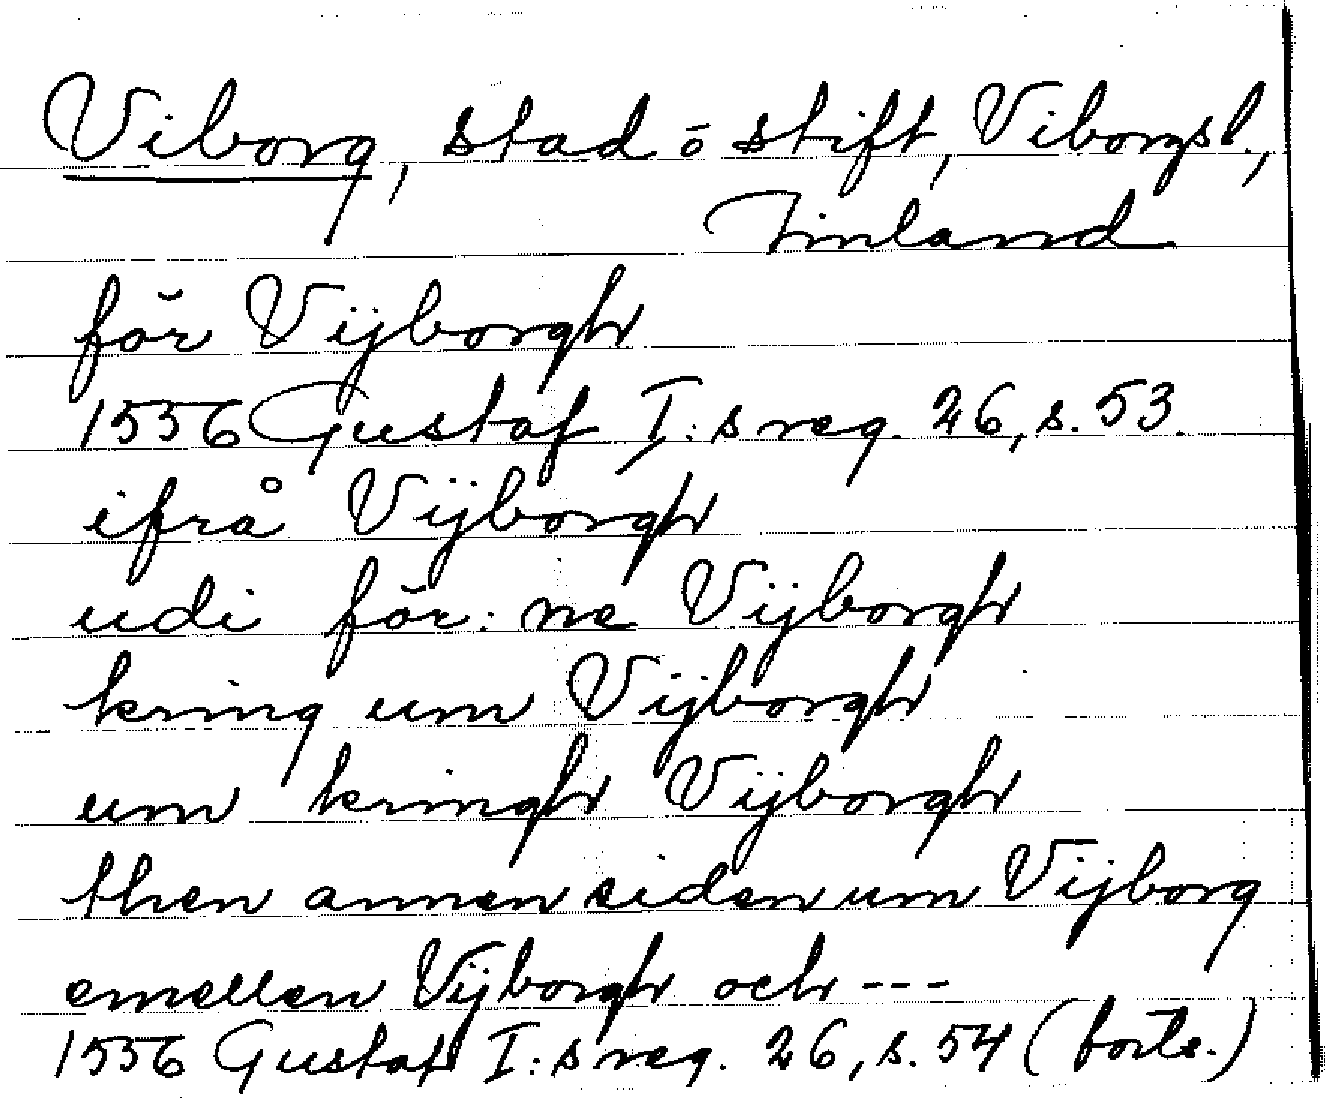 Viborg, stad o stift, Viborgsl.,
Finland
för Vijborgh
1556 Gustaf I:s reg. 26, s. 53.
ifrå Vijborgh
udi för:ne Vijborgh
kring um Vijborgh
um kringh Vijborgh
then annen siden um Vijborg
emellen Vijborgh och ---
1556 Gustaf I:s reg. 26, s. 54 (forts.)